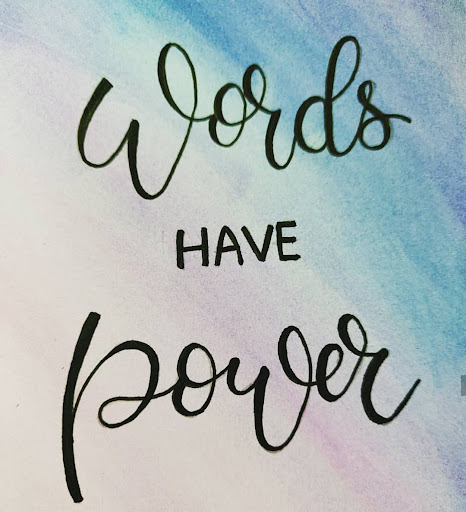 Words
HAVE
power